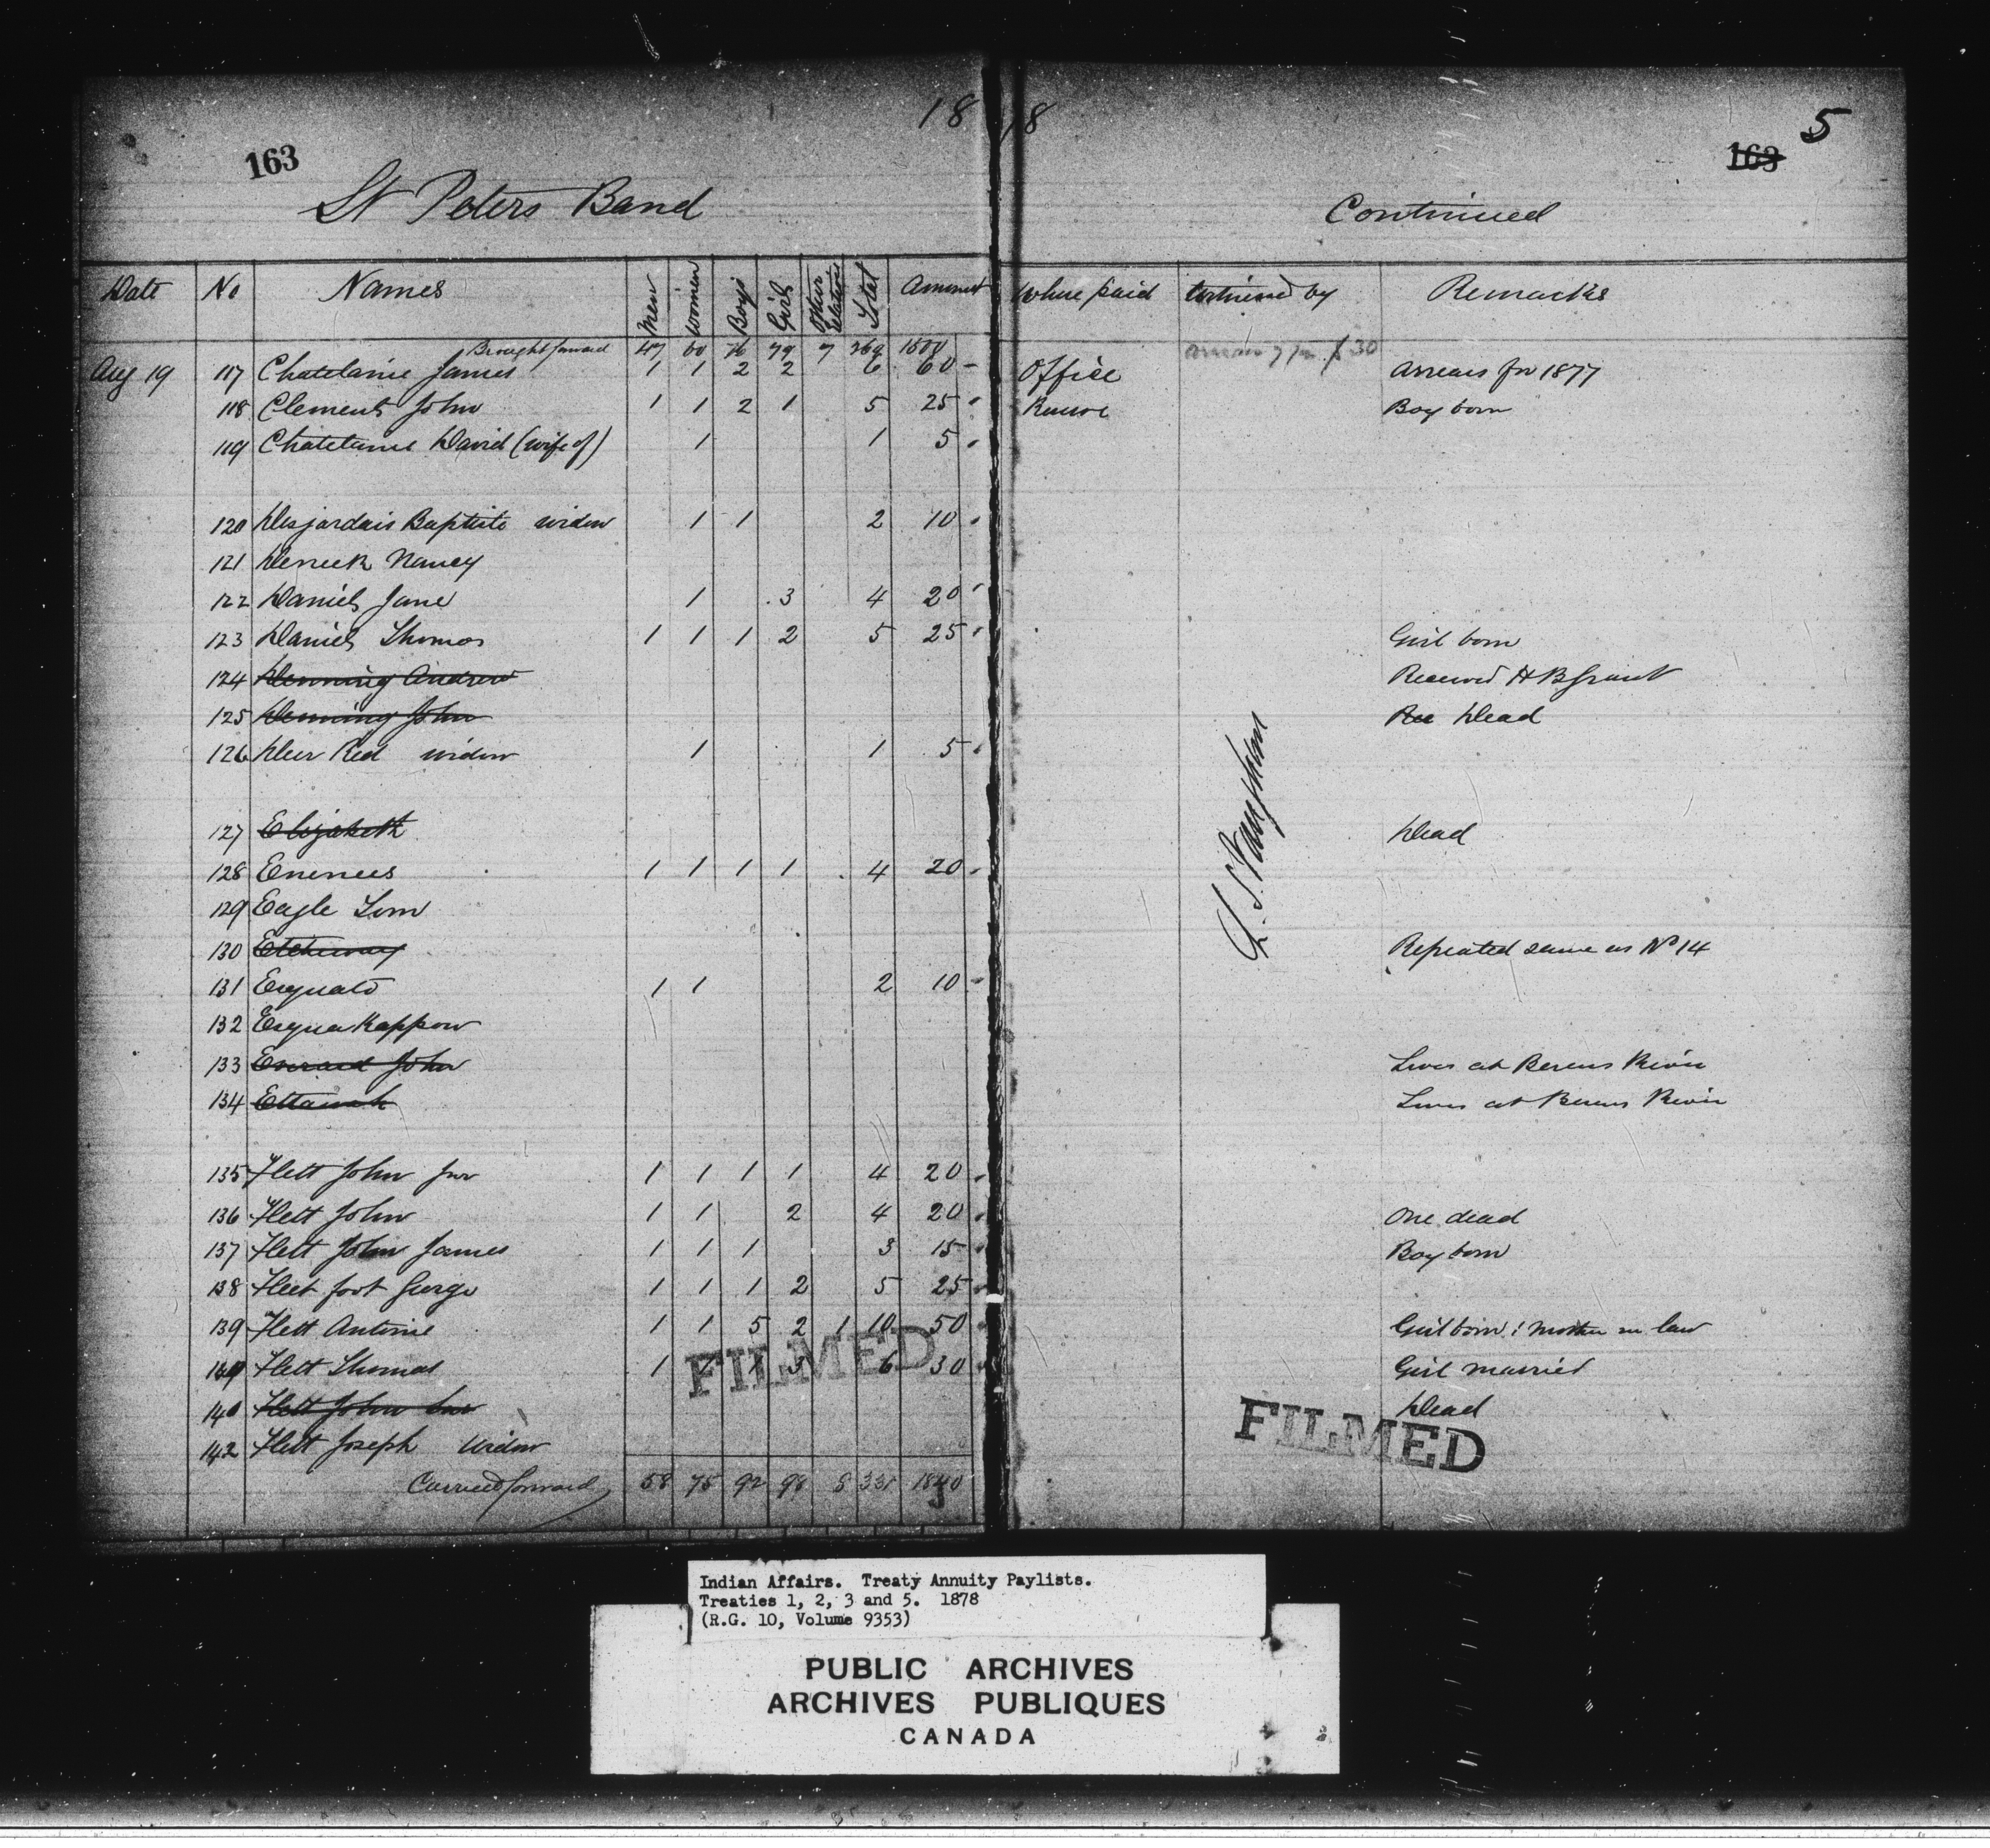 18 18
163
163 5
St Peters Band Continued
Date No Names Men Women Boys Girls Other relatives Total Amount Where paid by Remarks
Brought forward 47 60 76 79 7 269 1500
Aug 19 117 Chatelaine James 1 1 2 2 6 60 - Office Arrears for 1877
118 Clements John 1 1 2 1 5 25 Boy born
119 Chatelaine David (wife of) 1 1 5
120 Desjardais Baptiste widow 1 1 2 10
121 Nancy
122 Daniels Jane 1 3 4 20
123 Daniels Thomas 1 1 1 2 5 25 Girl born
124 Denning Andrew Received H B Grant
125 Denning John Rec Dead
126 Deer Red widow 1 1 5
127 Elizabeth Dead
128 Enenees 1 1 1 1 4 20
129 Eagle Tom
130 Repeated same as No 14
131 1 1 2 10
132 Esqua Kappow
133 Everard John Lives at Berens River
134 Lives at Berens River
135 Flett John Jnr 1 1 1 1 4 20
136 Flett John 1 1 2 4 20 One dead
137 Flett John James 1 1 1 3 15 Boy born
138 Fleet foot George 1 1 1 2 5 25
139 Flett Antoine 1 1 5 2 1 10 50 Girl born : Mother in law
Flett Thomas 1 1 1 3 6 30 Girl married
Flett John Snr Dead
142 Flett Joseph Widow
Carried forward 58 75 92 98 8 331 1840
FILMED
FILMED
Indian Affairs. Treaty Annuity Paylists.
Treaties 1, 2, 3 and 5. 1878
(R.G. 10, Volume 9353)
PUBLIC ARCHIVES
ARCHIVES PUBLIQUES
CANADA